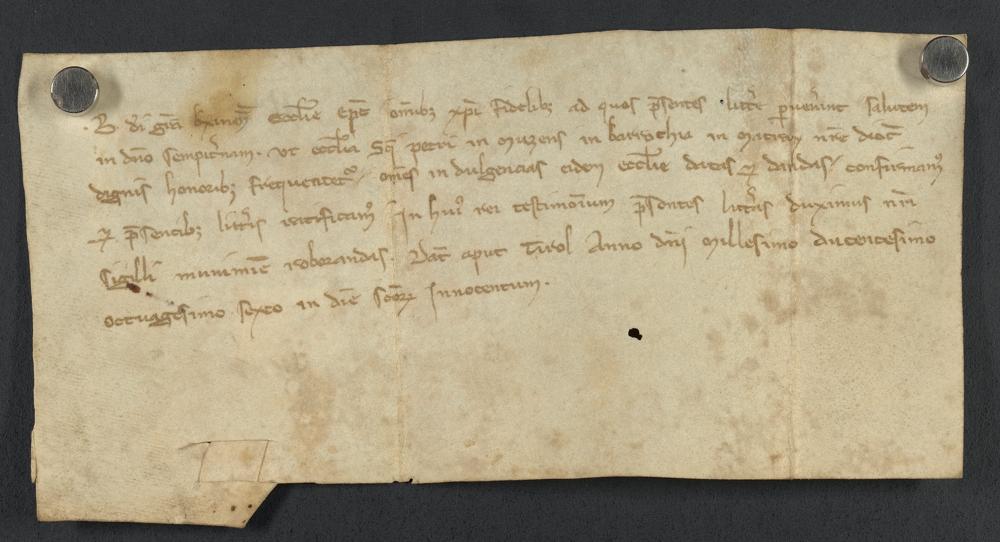 B. di gra brixinen ecclie Epc omibz xpi fidelibz ad quos psentes littre puenint salutem
in dno sempitnam. Ut ecclia Sci petri in Muzens in barrochia in Matray nre dioc
dignis honoribz frequentetr / omes indulgencias eidem ecclie datas et dandas / confirmam9
et psencibz littis ratificam9 In hui9 rei testimonium psentes littas duximus nri
sigilli munimie roborandas. Dat aput Tirol Anno dni Millesimo ducentesimo
octuagesimo sexto in die scor Innocentum.